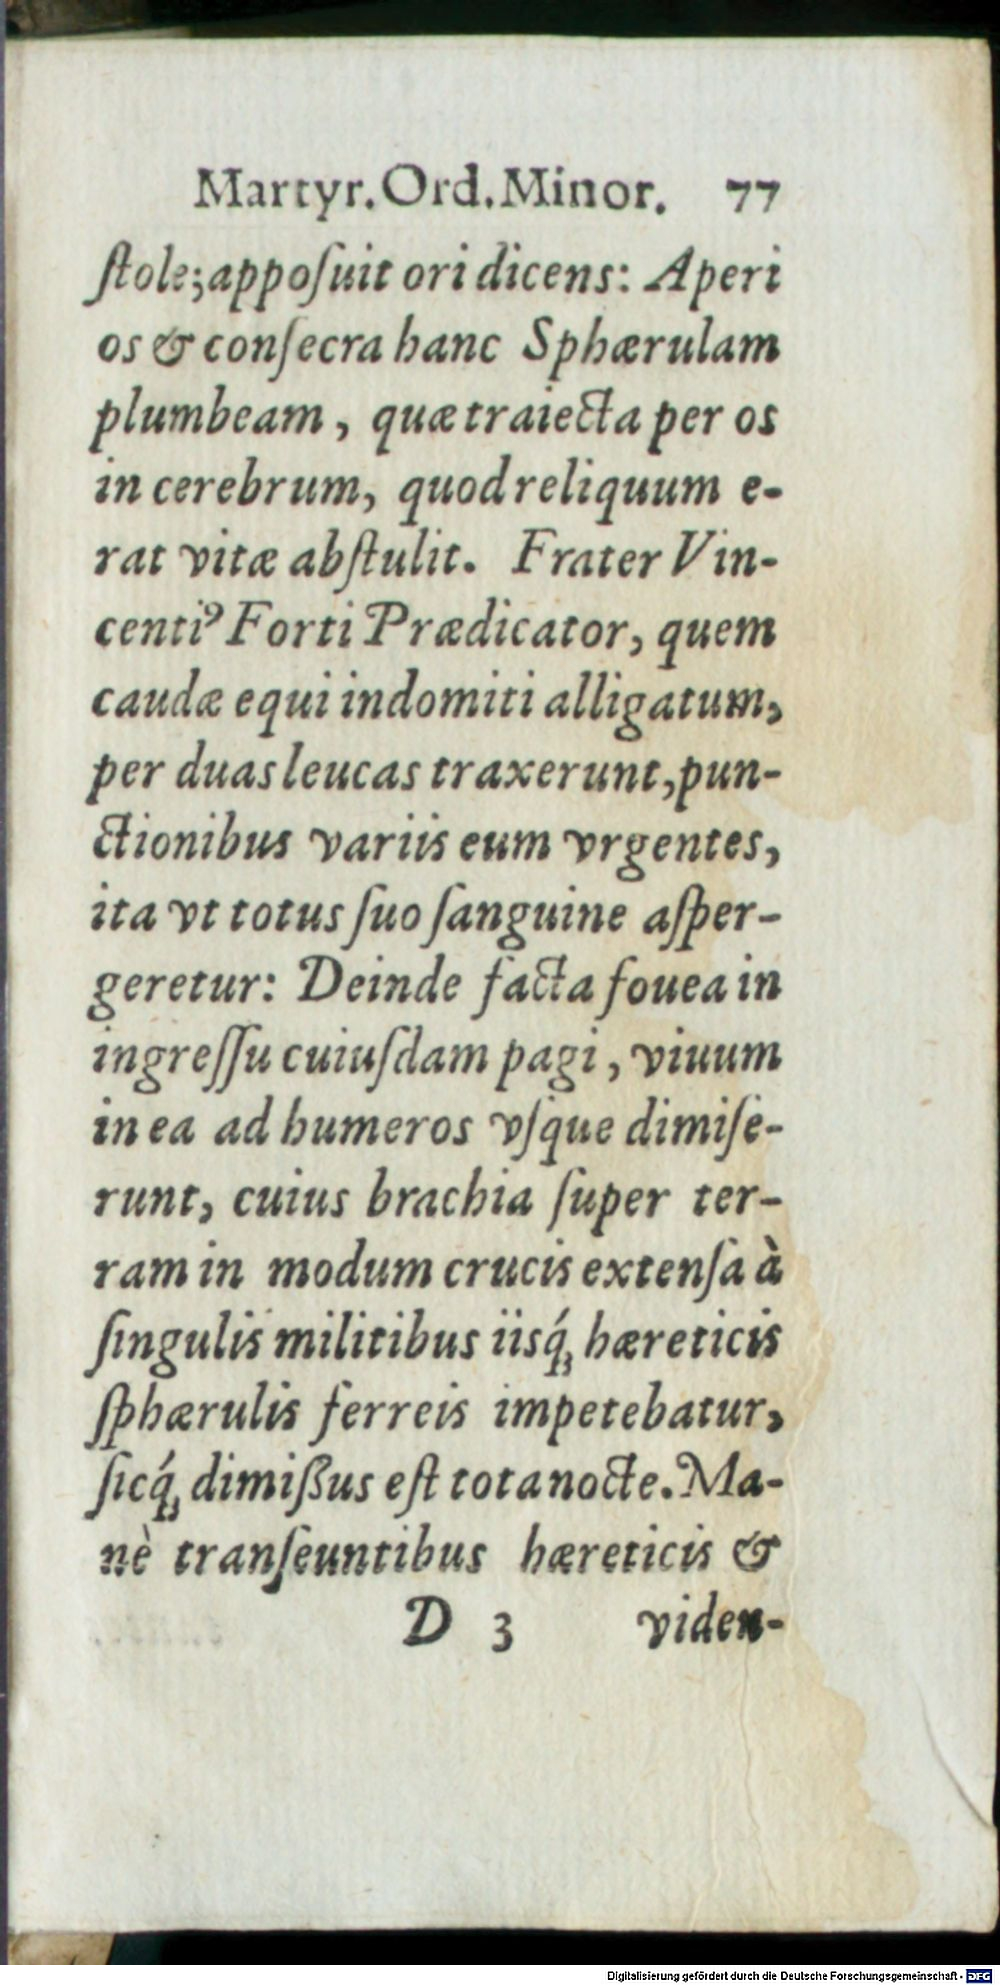 Martyr. Ord. Minor. 77
ſtole; appoſuit ori dicens: Aperi
os & conſecra hanc Sphærulam
plumbeam, quæ traiecta per os
in cerebrum, quod reliquum e-
rat vitæ abſtulit. Frater Vin-
centiꝰ Forti Prædicator, quem
caudæ equi indomiti alligatum,
per duas leucas traxerunt, pun-
ctionibus variis eum vrgentes,
ita vt totus ſuo ſanguine aſper-
geretur: Deinde facta fouea in
ingreſſu cuiuſdam pagi, viuum
in ea ad humeros vſque dimiſe-
runt, cuius brachia ſuper ter-
ram in modum crucis extenſa à
ſingulis militibus iisq́; hæreticis
ſphærulis ferreis impetebatur,
ſicq́; dimißus eſt tota nocte. Ma-
nè tranſeuntibus hæreticis &
D 3 viden-
Digitalisierung gefördert durch die Deutsche Forschungsgemeinschaft - DFG